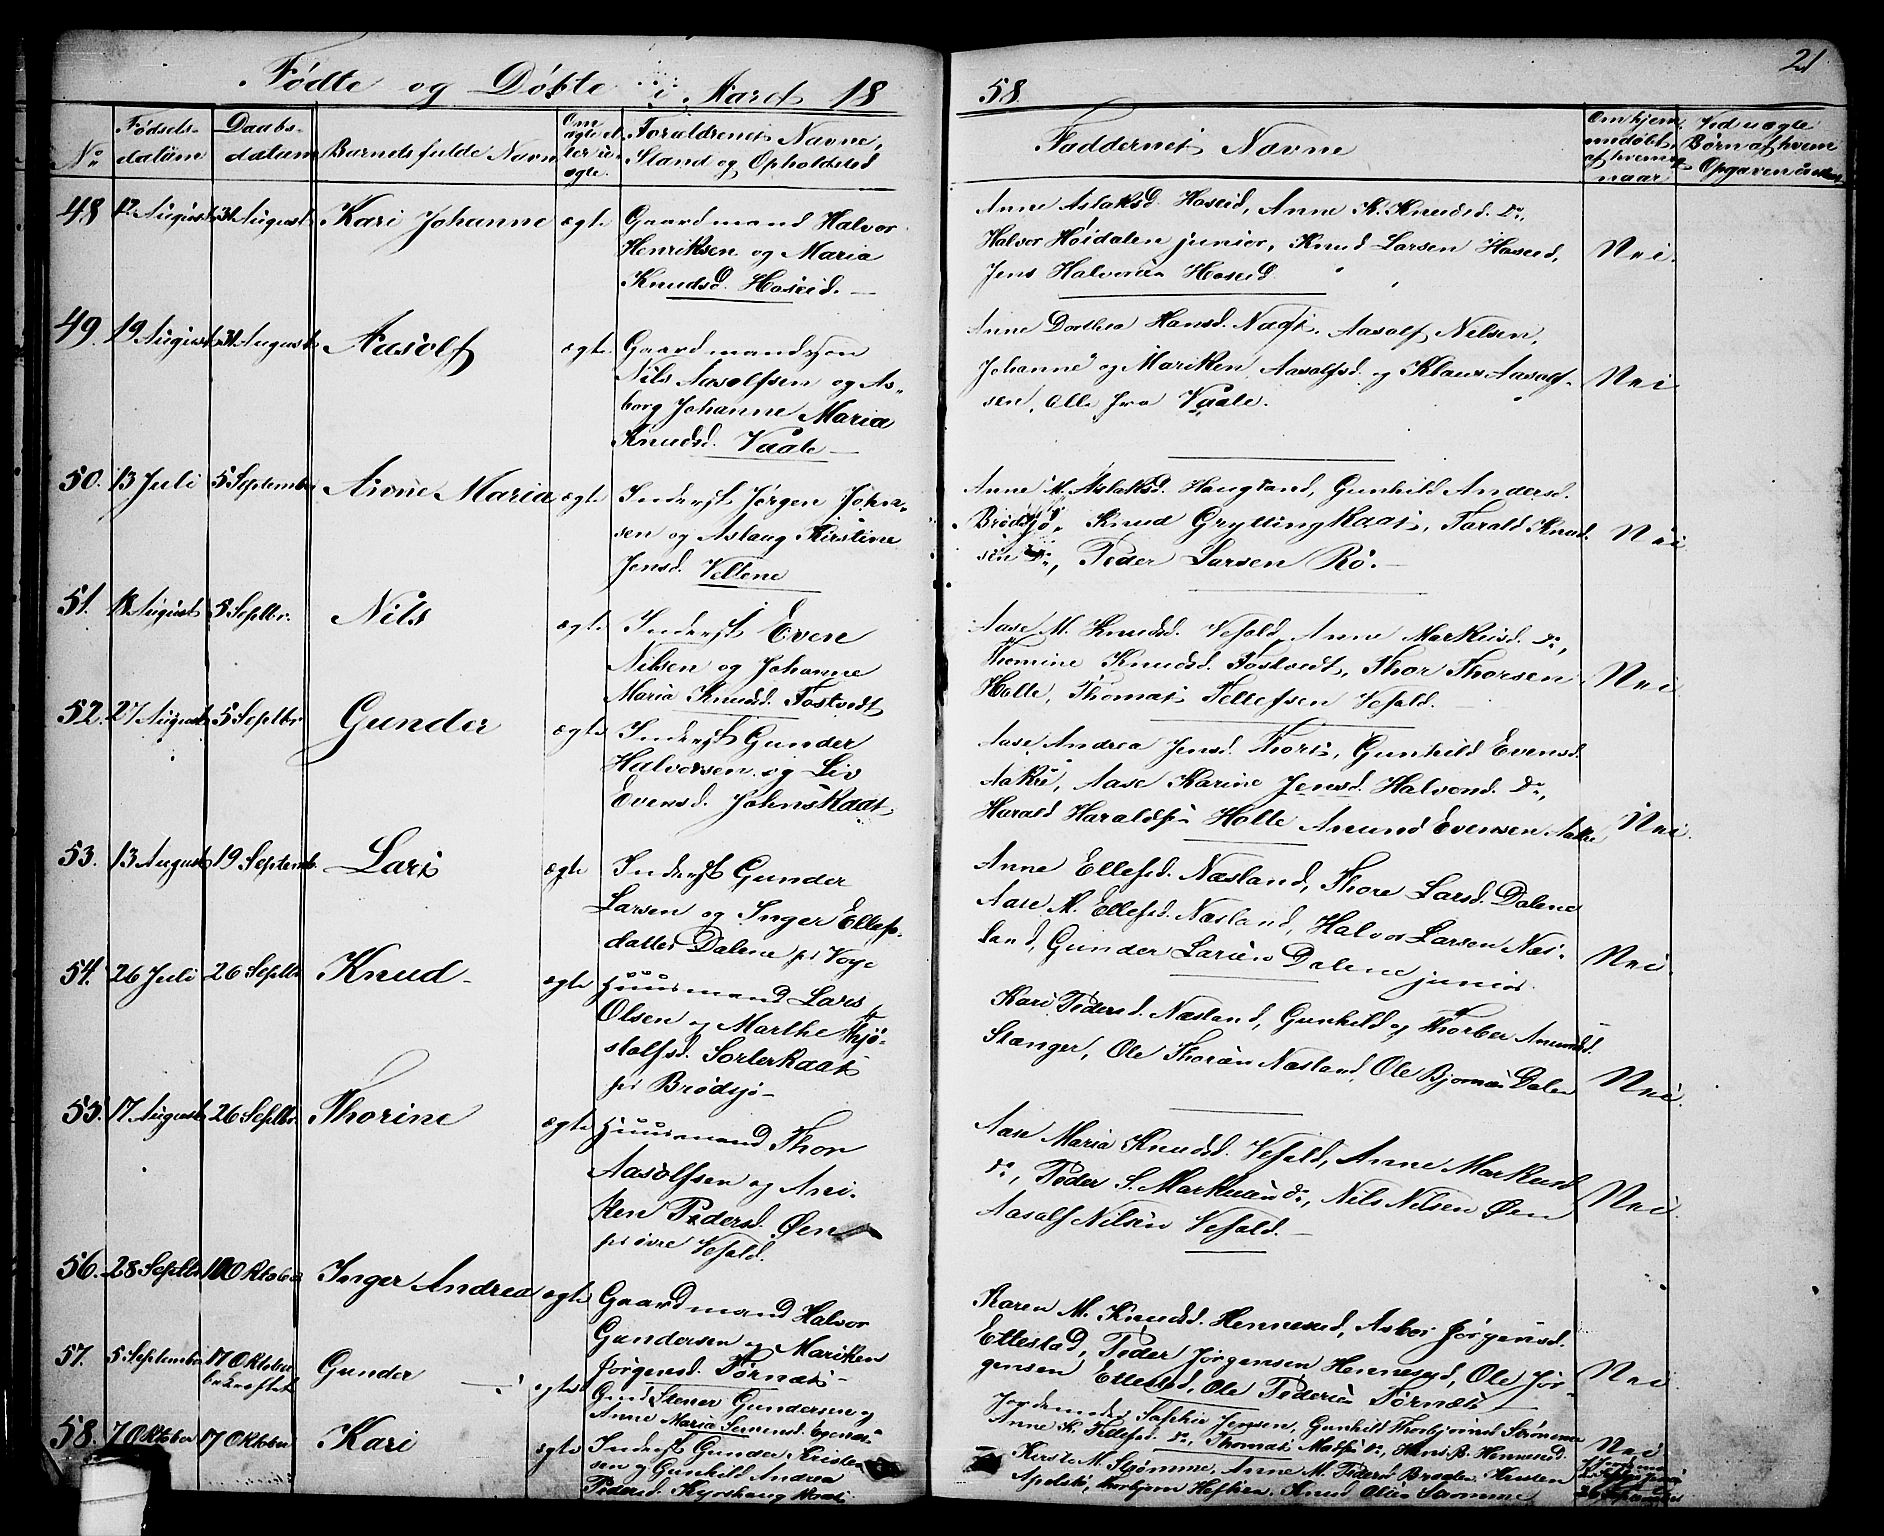 Födte og Döbte i Aaret 18
58.
21
No
Födsels-
datum
Daabs-
datum
Barnets fulde Navn
Om
ægte el-
ler u-
ægte.
Foraldrenes Navne,
Stand og Opholdsted
Faddernes Navne
Om hjem-
medöbt,
af hvem og
naar
Ved uægte
Börn af hvem
Opgaven
48 12 August 31 August Kari Johanne ægte Gaardmand Halvor
Henriksen og Maria
Knudsd. Hoseid. —
Anne Aslaksd. Hoseid, Anne K. Knudsd. Do,
Halvor Höidalen junior, Knud Larsen Hoseid,
Jens Halvorsen Hoseid.
Nei.
49. 19 August 31 August Aasolf ægte. Gaardmandssön
Nils Aasolfsen og As-
borg Johanne Maria
Knudsd. Vaale —
Anne Dorthea Hansd. Næs, Aasolf Nelsen,
Johanne og Mariken Aasolfsd. og Klaus Aasolf-
sen, alle fra Vaale.
Nei
50. 13 Juli 5 September Anne Maria ægte Inderst Jörgen John-
sen og Aslaug Kirstine
Jensd. Vellene
Anne M. Aslaksd. Haugland, Gunhild Andersd.
Brödsjö, Knud Gryttingkaas, Tarald Knud-
sen Do, Peder Larsen Rö. —
Nei
51. 18 August 5 Septbr. Nils ægte Inderst Even
Nilsen og Johanne
Maria Knudsd. Tostvedt
Aase M. Knudsd. Vefald, Anne Markusd. Do,
Thomine Knudsd. Tostvedt, Thor Thorsen
Holte, Thomas Tellefsen Vefald.
Nei
52. 27 August 5 Septbr Gunder ægte Inderst Gunder
Halvorsen og Liv
Evensd. Johnskaas
Aase Andrea Jensd. Thors, Gunhild Evensd.
Aakre, Aase Karine Jensd. Do,
Harald Haraldsen Holte Amund Evensen Aakre,
Nei.
53. 13 August 19 Septemb. Lars ægte Inderst Gunder
Larsen og Inger Ellefs-
datter Dalene pr Voje
Anne Ellefsd. Næsland, Thore Larsd. Dalene
Aase M. Ellefsd. Næsland, Halvor Larsen Næs-
land, Gunder Larsen Dalene junior.
Nei.
54. 26 Juli 26 Septbr Knud - ægte Huusmand Lars
Olsen og Marthe Thjö-
stolfsd. Sorterkaas
pr Brödsjö —
Kari Pedersd. Næsland, Gunhild og Thorber Amundsd.
Stanger, Ole Thorsen Næsland, Ole Bjornsen Dalen
Nei.
55. 17 August 26 Septbr. Thorine ægte Huusmand Thor
Aasolfsen og Ani-
ken Pedersd. Öen
pr övre Vefald.
Aase Maria Knudsd. Vefald, Anne Markusd.
Do, Peder S. Markusen Do, Nils Nilsen Öen
Aasolf Nilsen Vefald. —
Nei.
56. 28 Septbr 10 Oktober Inger Andrea ægte Gaardmand Halvor
Gundersen og Mariken
Jörgensd. Törnæs —
Karen M. Knudsd. Hennesed, Asbor Jörgensd.
Ettestad, Peder Jörgensen Hennesed, Ole Jör-
gensen Ettestad, Ole Pedersen Törnæs
Nei.
57. 5 September 17 Oktober
bekræftet
Gunder ægte Gmd. Stener Gundersen og
Anne Maria
Jordemoder Sophie Jensen, Gunhild Thorbjörnsd. Strömme
Anne K. Tellefsd. Do, Thomas Do, Hans B. Hennesed.
Nei
58. 7 Oktober 17 Oktober Kari ægte Inderst Gunder Kristen-
sen og Gunhild Andrea
Pedersd.
Kirste M. Strömme, Anne M. Pedersd
Knud Olsen Strömme